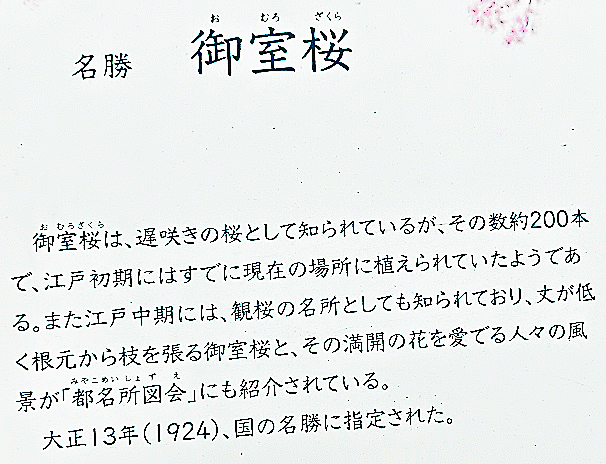 お むろ ざくら
名勝 御室桜
お むろざくら
御室桜は、遅咲きの桜として知られているが、その数約200本
で、江戸初期にはすでに現在の場所に植えられていたようであ
る。また江戸中期には、観桜の名所としても知られており、丈が低
く根元から枝を張る御室桜と、その満開の花を愛でる人々の風
みやこめいしょずえ
景が「都名所図会」にも紹介されている。
大正13年(1924)、国の名勝に指定された。